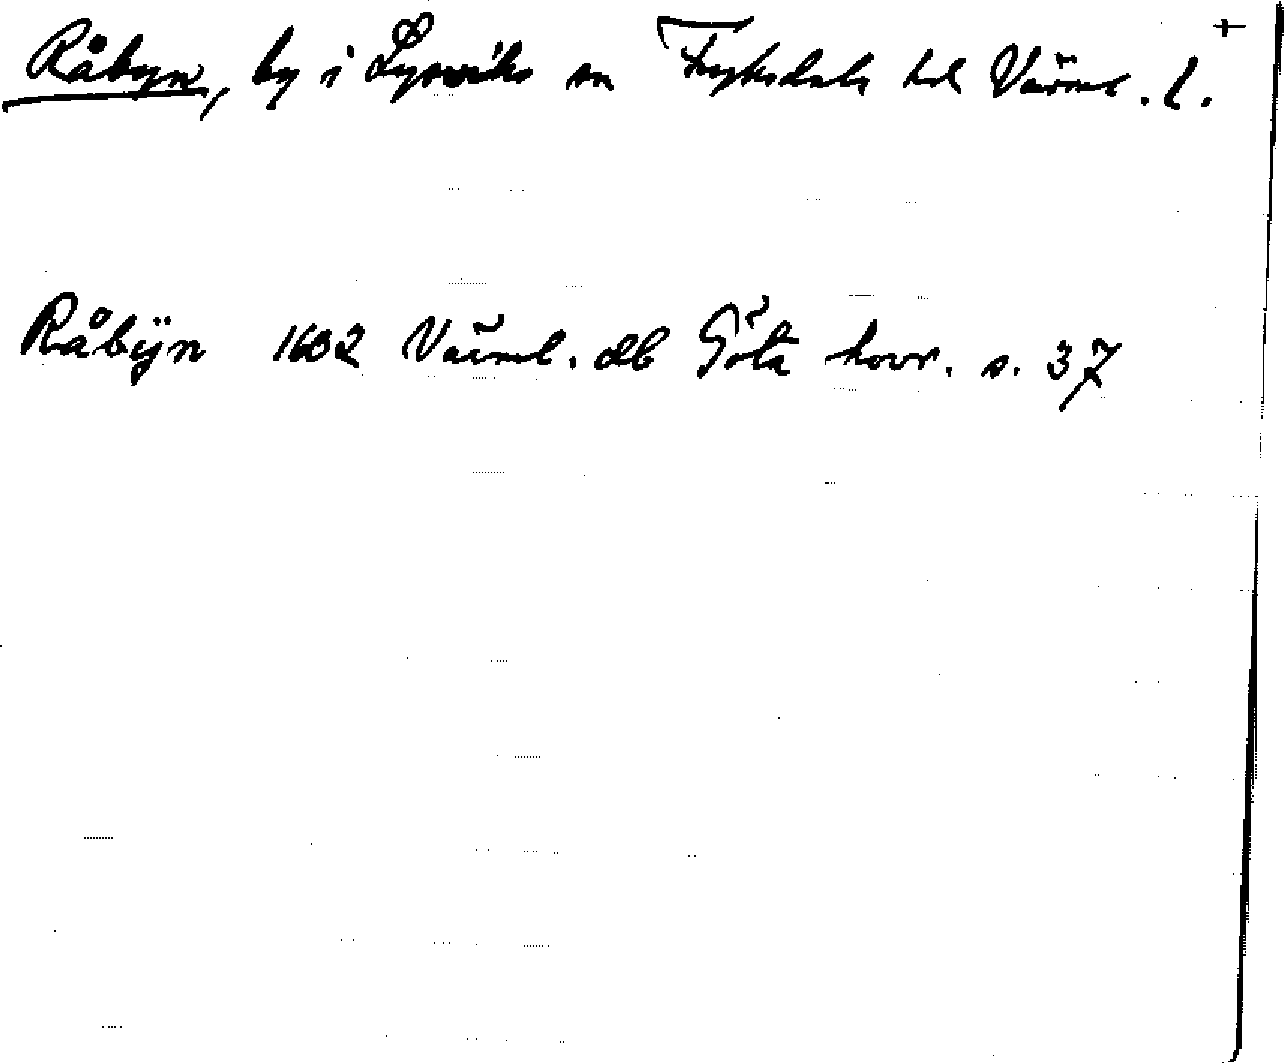 +
Råbyn, by i Lysviks sn Fryksdals hd Värml. l.
Råbÿn 1602 Värml. db Göta hovr. s. 37